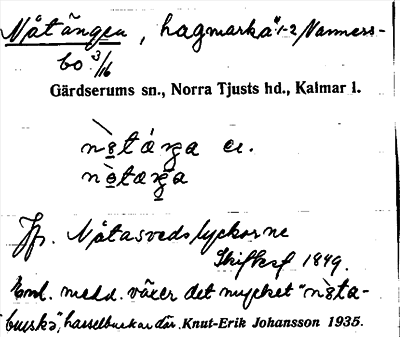 Nåtängen, hagmark å "1-2 Nanners-
bo 3/16
Gärdserums sn., Norra Tjusts hd., Kalmar l.
Jfr. Nåtasvedslyckorne
Skifteskf 1849.
Enl. medd. växer det mycket "nòta-
buskă", hasselbuskar där. Knut-Erik Johansson 1935.